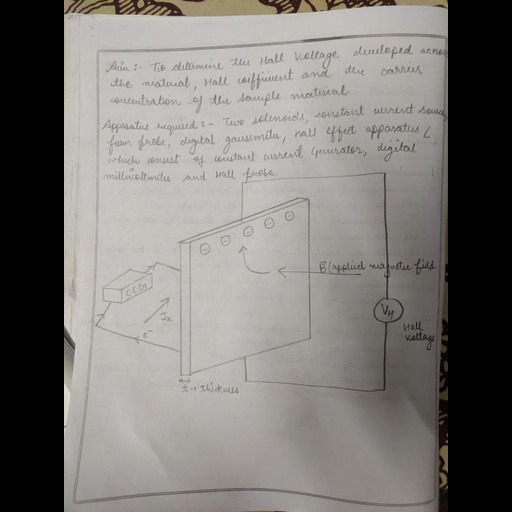 Aim :- To determine the Hall Voltage developed across
the material, Hall coefficient and the carrier
concentration of the sample material.
Apparatus required :- Two solenoids, constant current source,
four probe, digital gaussmeter, Hall effect apparatus (
which consist of constant current generator, digital
millivoltmeter, and Hall probe.
B (applied magnetic field
CCG
Jx
e-
VH
Hall
Voltage
t → thickness